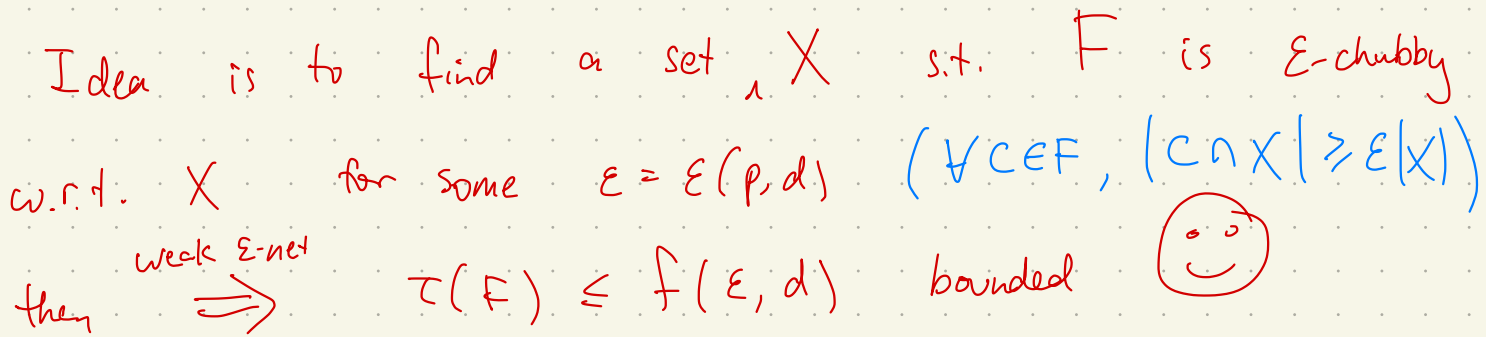 Idea is to find a set X s.t. F is ε-chubby
w.r.t. X for some ε = ε(p,d) (∀C∈F, |C∩X| ≥ ε|X|)
weak ε-net
then ⟹ τ(F) ≤ f(ε,d) bounded